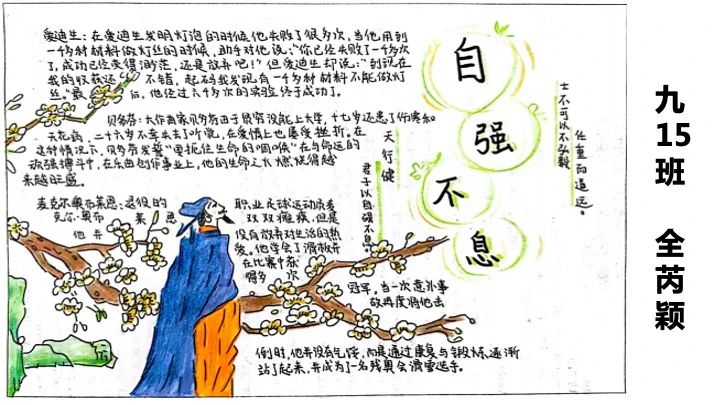 爱迪生：在爱迪生发明灯泡的时候他失败了很多次，当他用到
一千多种材料做灯丝的时候，助手对他说："你已经失败了一千多次
了，成功已经变得渺茫，还是放弃吧！"但爱迪生却说："到现在
我的收获还不错，起码我发现有一千多种材料不能做灯
丝。"最后，他经过六千多次的实验终于成功了。
贝多芬：大作曲家贝多芬由于贫穷没能上大学，十七岁还患了伤寒和
天花病，二十六岁不幸失去了听觉，在爱情上也屡受挫折。在
这种情况下，贝多芬发誓"要扼住生命的咽喉"在与命运的
顽强搏斗中，在乐曲创作事业上，他的生命之火燃烧得越
来越旺盛。
麦克尔·奥布莱恩：退役的
克尔·奥布莱恩
他并
职业足球运动员麦
双双瘫痪，但是
没有放弃对生活的热
爱。他学会了滑板并
在比赛中获
得多次
冠军。当一次意外事
故再度将他击
倒时，他并没有气馁，而是通过康复与锻炼逐渐
站了起来，并成为了一名残奥会滑雪选手。
自
强
不
息
天行健
君子以自强不息
士不可以不弘毅
任重而道远。
九15班 全芮颖